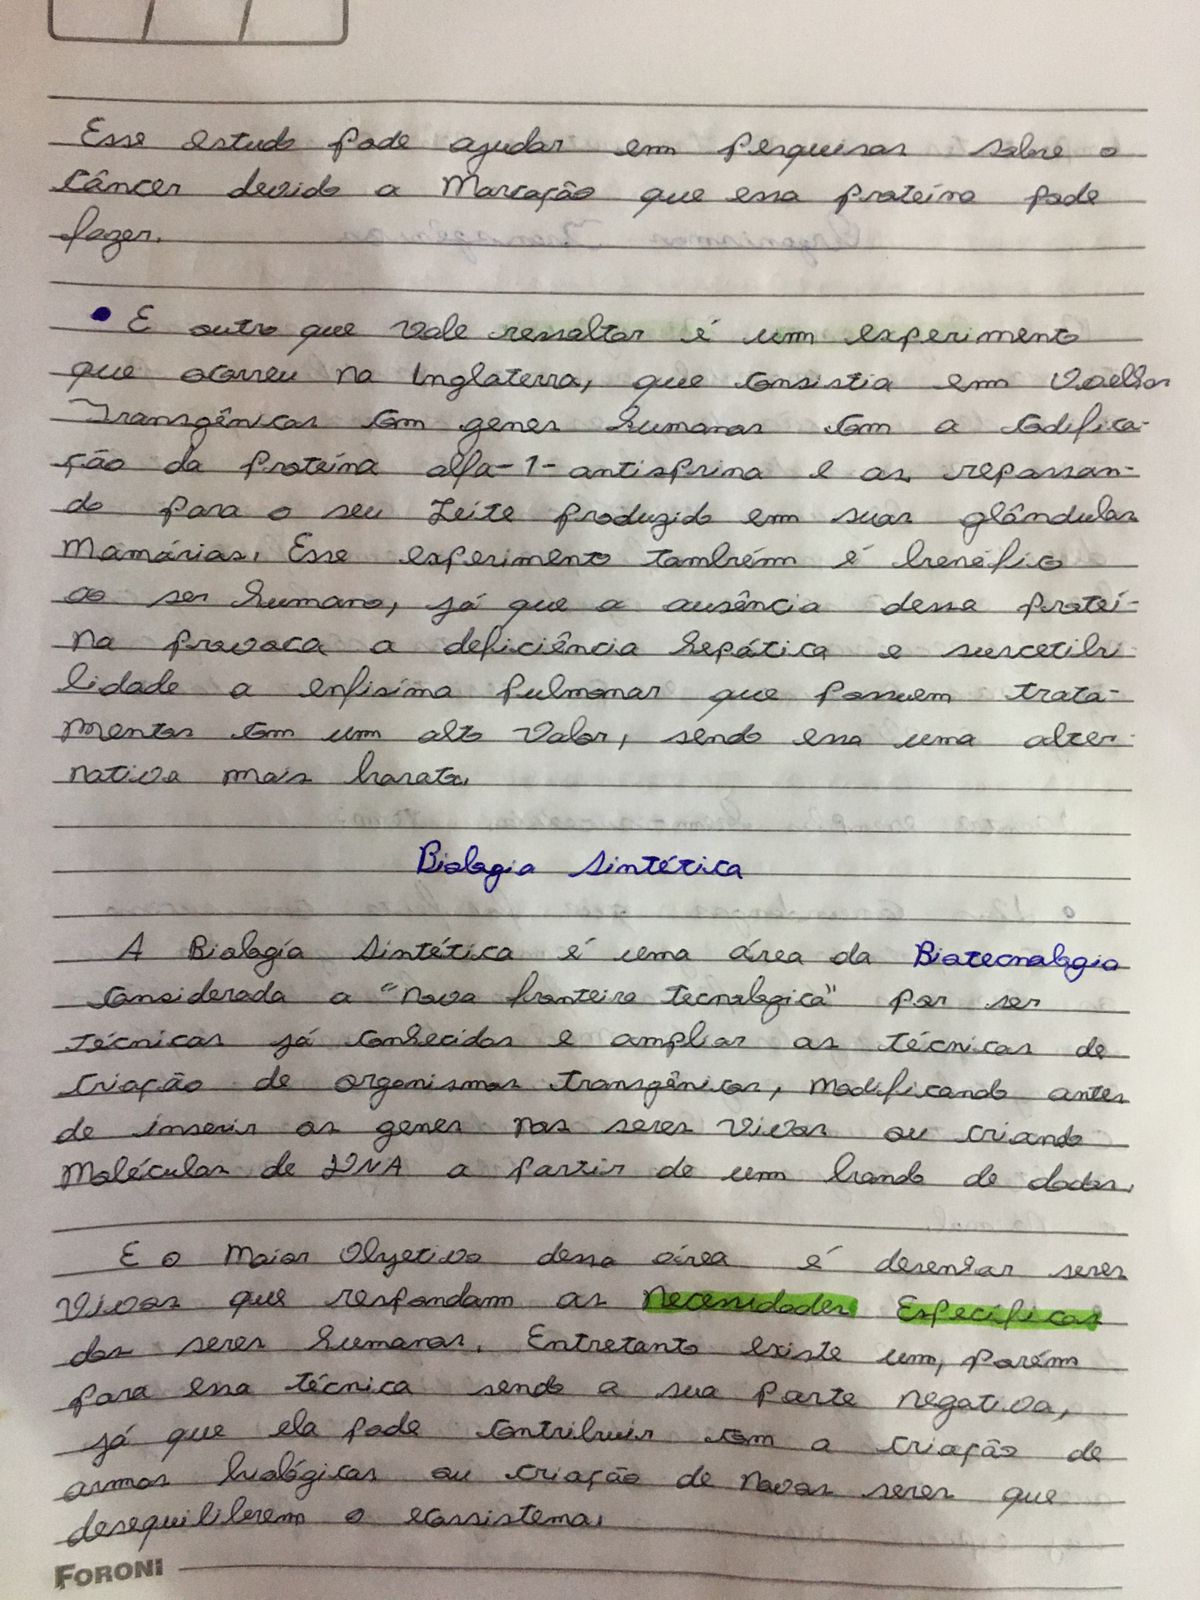 Esse estudo pode ajudar em pesquisas sobre o
câncer devido a Marcação que essa proteína pode
fazer.
• E outro que vale ressaltar é um experimento
que ocorreu na Inglaterra, que consistia em
Transgênicas com genes humanos com a codifica-
ção da proteína alfa-1-antisprina e as repassan-
do para o seu Leite produzido em suas glândulas
Mamárias. Esse experimento também é benéfico
ao ser humano, já que a ausência dessa proteí-
na provoca a deficiência hepática e suscetibi
lidade a enfisima pulmonar que possuem trata-
mentos com um alto valor, sendo essa uma alter-
nativa mais barata.
Biologia Sintética
A Biologia Sintética é uma área da Biotecnologia
considerada a "nova fronteira tecnologica" por ser
técnicas já conhecidas e ampliar as técnicas de
criação de organismos transgênicos, modificando antes
de inserir os genes nos seres vivos ou criando
Moléculas de DNA a partir de um bando de dados.
E o maior objetivo dessa área é desenhar seres
vivos que respondam as Necessidades Específicas
dos seres humanos. Entretanto existe um, porém
para essa técnica sendo a sua parte negativa,
já que ela pode contribuir com a criação de
armas biológicas ou criação de novos seres que
desequiliberem o ecossistema.
FORONI